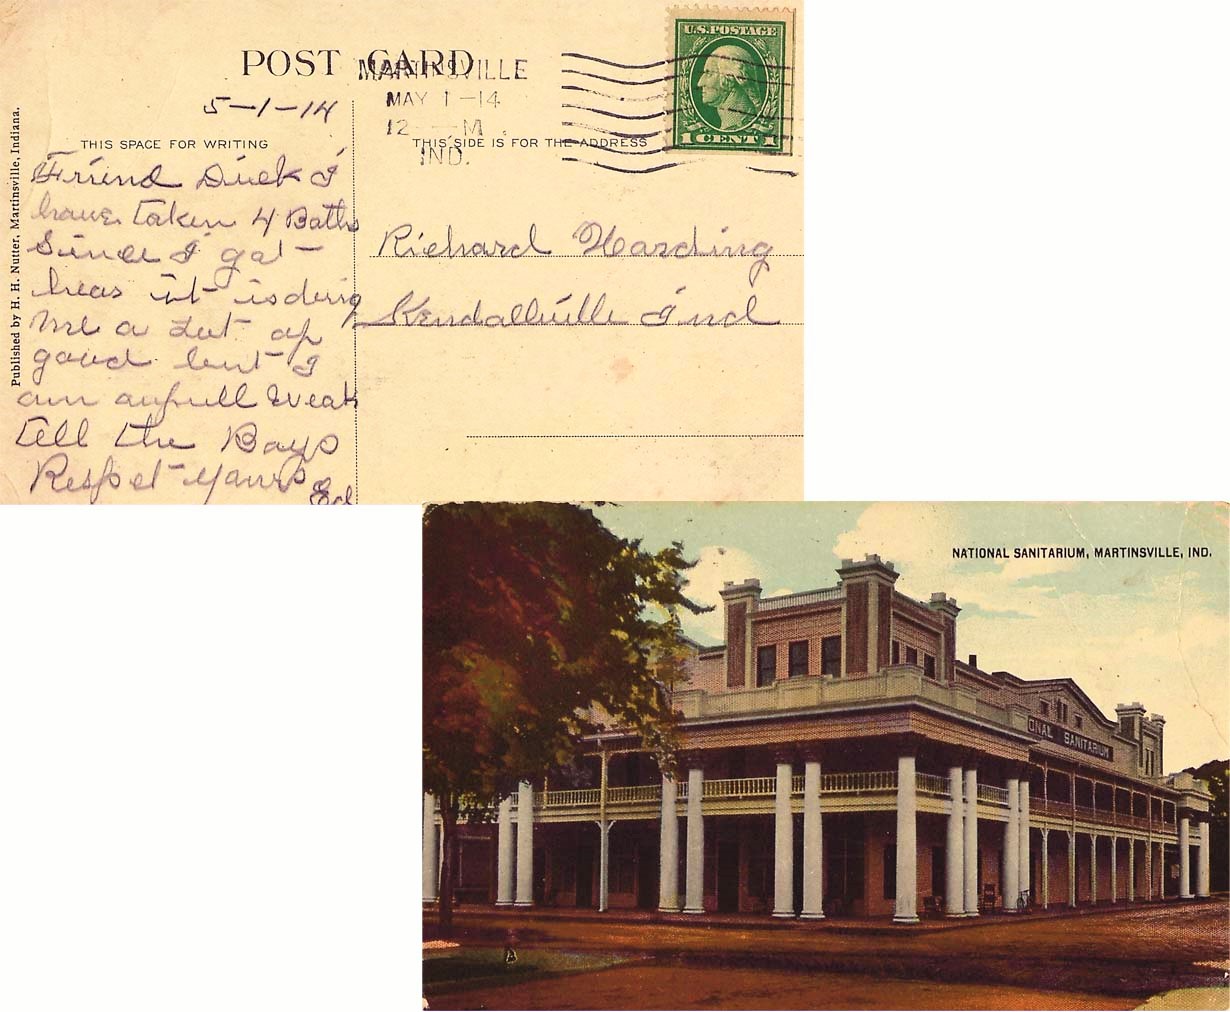 POST CARD
MARTINSVILLE
MAY 1-14
12 - M
IND.
U.S. POSTAGE
1 CENT 1
5-1-14
THIS SPACE FOR WRITING
THIS SIDE IS FOR THE ADDRESS
Published by H. H. Nutter, Martinsville, Indiana.
Friend Dick I
have taken 4 Baths
Since I gat
hear it is doing
me a Lut of
good but I
am aufull Weak
tell the Boys
Respet Yours
Ed
Richard Harding
Kendallville Ind
NATIONAL SANITARIUM, MARTINSVILLE, IND.
ONAL SANITARIUM